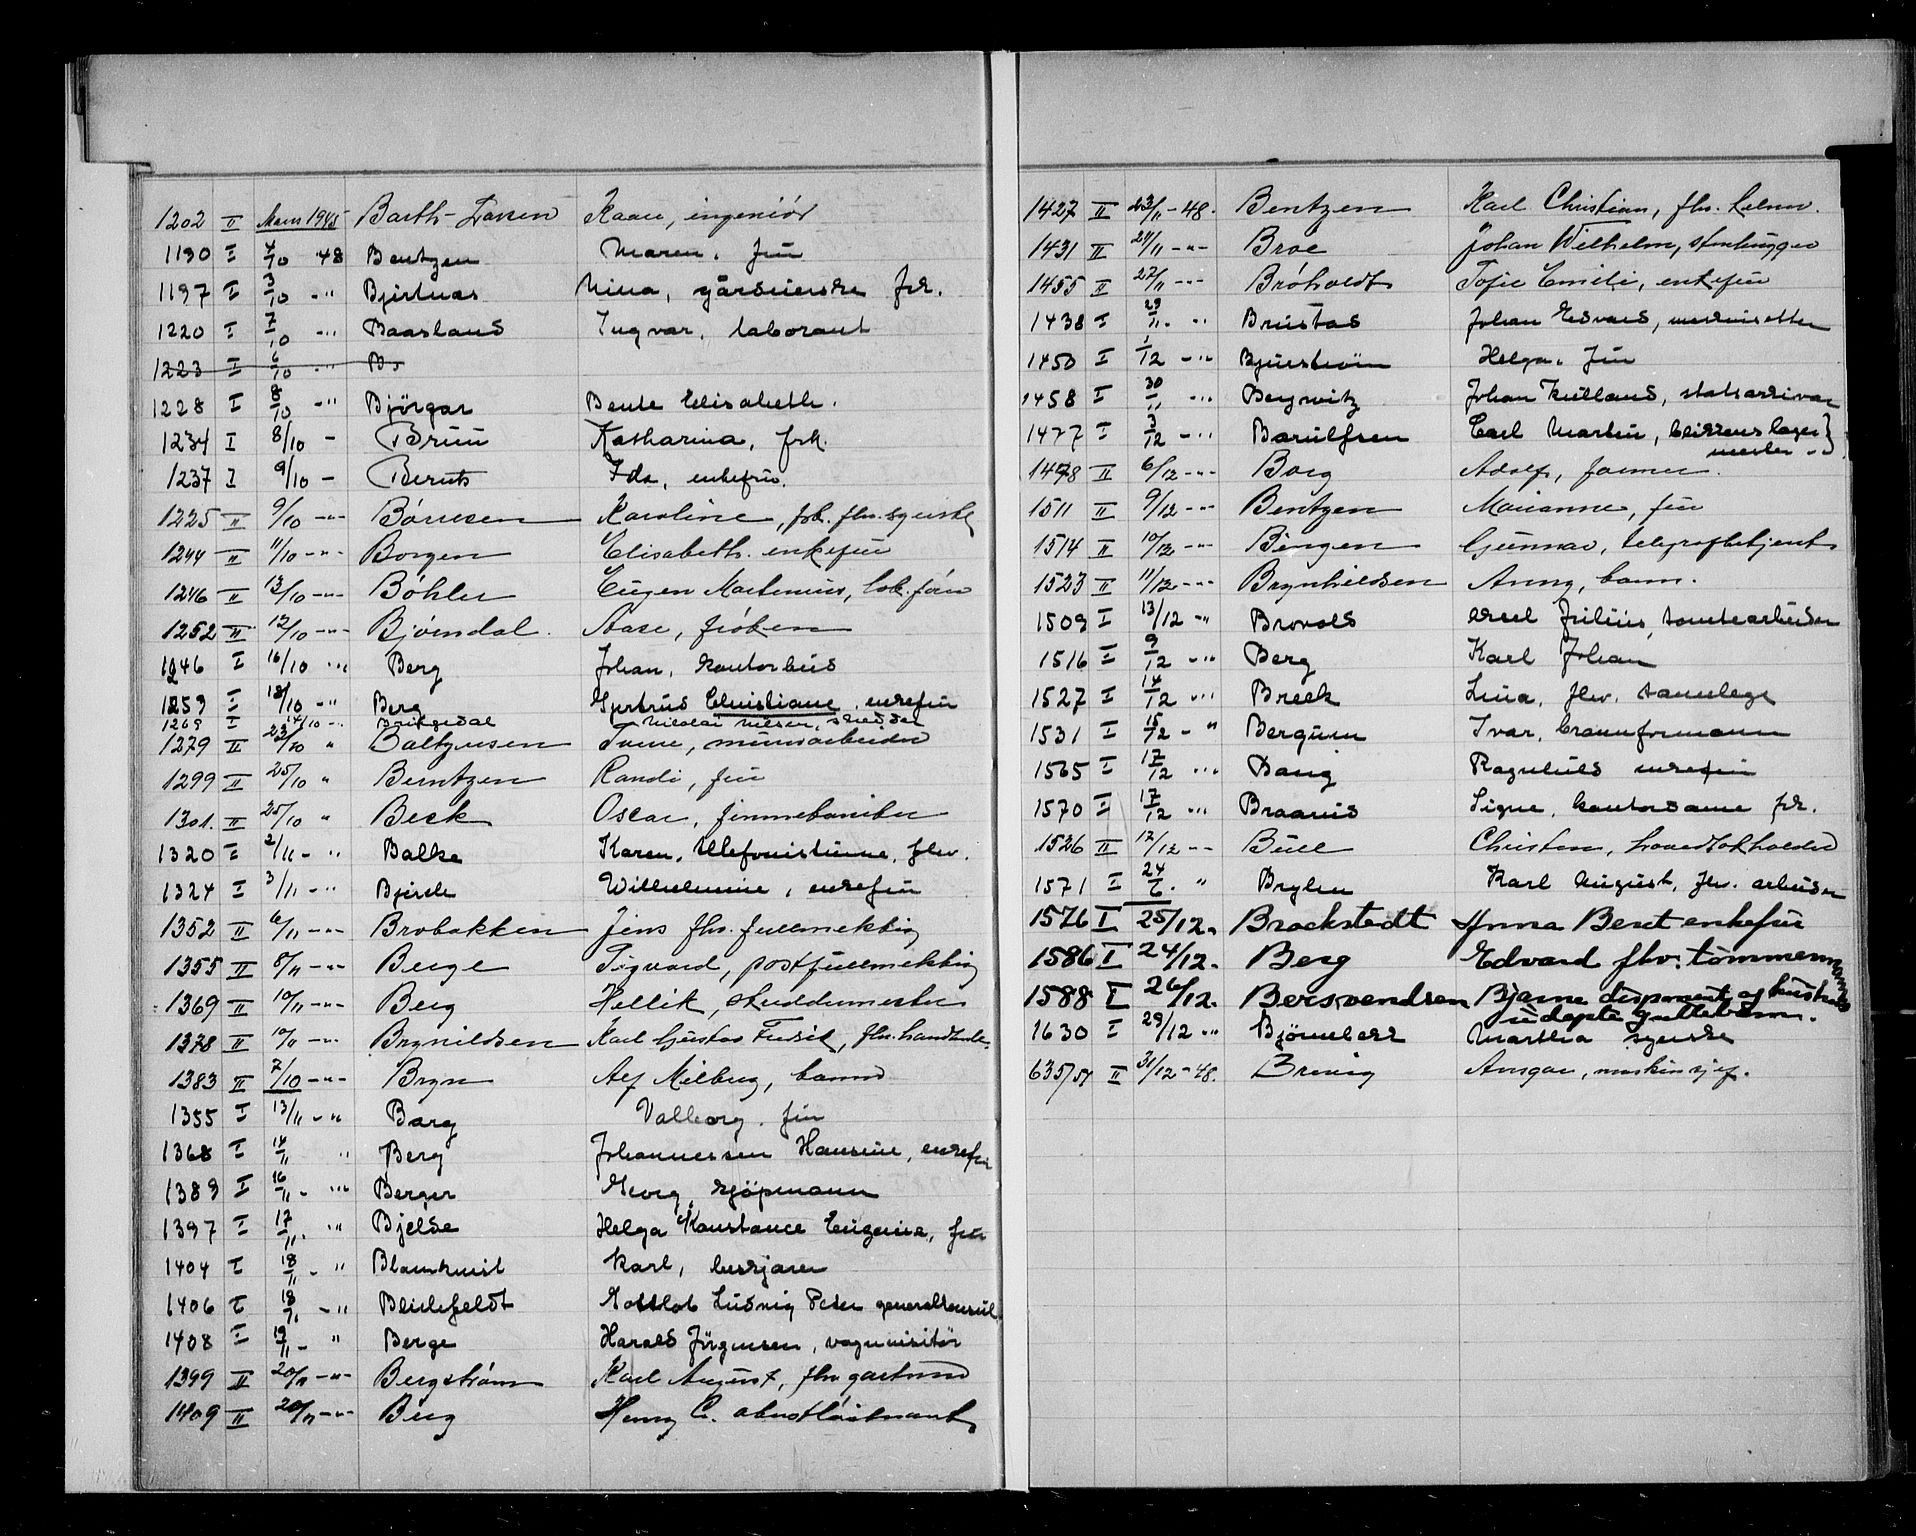 1202 II Mars 1945 Barth-Larsen Kaare, ingeniör
1190 I 4/10 48 Bentzen Maren. fru
1197 I 3/10 -" Bjertnæs Nina, gårdeierske frk.
1220 I 7/10 -" Baasland Ingvar. laborant
1223 I 6/10 -" B
1228 I 8/10 -" Björgar Bente Elisabeth.
1234 I 8/10 - Bruu Katharina, frk.
1237 I 9/10 - Berntz Ida, enkefru.
1225 II 9/10 -"- Börresen Karoline, frk. fhv. syerske
1244 II 11/10 -"- Borgen Elisabeth. enkefru
1246 II 13/10 -"- Böhler Eugen Martinius, lok.förer
1252 II 12/10 -"- Björndal. Aase, fröken
1246 I 16/10 -" Berg Johan, kontorbud
1259 I 18/10 -" Berg Gjertrud Christiane, enkefru
1269 I 14/10 -" Briksdal Nicolai Nilsen, skredder
1279 II 23/10 " Baltzersen murarbeider
1299 II 25/10 " Berntzen Randi, fru
1301. II 25/10 " Beck Oscar, finnebaniker
1320 I 2/11 - " Balke Karen, telefonistinne, fhv.
1324 I 3/11 -" Bjerde Wilhelmine, enkefru
1352 II 6/11 -"- Brobakken Jens fhv. fullmektig
1355 II 8/11 -"- Berge Sigvard, postfullmektig
1369 II 10/11 -"- Berg Hellik, skreddermester
1378 II 10/11 -"- Brynildsen Karl Gustav Fredrik, fhv. handlende
1383 II 7/10 -"- Bryn Alf Milberg, barn
1355 I 13/11 -" Barg Valborg. fru
1368 I 14/11 " Berg Johannessen Hansine, enkefru
1389 I 16/11 - " Berger Georg, kjöpmann
1397 I 17/11. " Bjelke Helga Konstance Eugenie, fru
1404 I 18/11 - " Blomkvist Karl, beskjærer
1406 I 18/11 -" Bleilefeldt Gottlob Ludvig Peter generalkonsul
1408 I 19/11 - " Berge Harald Jörgensen, vognvisitör
1399 II 20/11 -"- Bergström Karl August, fhv gartner
1409 II 20/11 -"- Berg Henry C. oberstlöitnant
1427 II 23/11 -48. Bentzen Karl Christian, fhv.
1431 II 24/11 -"- Broe Johan Wilhelm, stenhugger
1455 II 27/11 -"- Bröholdt Sofie Emilie, enkefru
1438 I 29/11. " Brustad Johan Edvard, maskinsetter
1450 I 1/12 -" Bjurström Helga. fru
1458 I 30/11 -" Beyrvitz Johan Kielland, statsarkivar
1477 I 3/12 -" Barulfsen Carl Martin, blikkenslager}
mester
1478 II 6/12 -"- Borg Adolf, former.
1511 II 9/12 -"- Bentzen Marianne, fru
1514 II 10/12 -"- Bingen Gunnar, telegrafbetjent
1523 II 11/12 -"- Brynhildsen Anny, barn.
1509 I 13/12 -" Brovold Axel Julius, tomtearbeider
1516 I 9/12 -" Berg Karl Johan
1527 I 14/12 -" Breck Lina, fhv. tannlege
1531 I 15/12 - " Bergum Ivar, brannformann
1565 I 17/12 -" Bang Ragnhild enkefru
1570 I 17/12 -" Braarud Signe, kontordame frk.
1526 II 17/12 -"- Bull Christen, hovedbokholder
1571 I 24/6. " Brylen Karl August, fhv. arbeider
1576 I 25/12. Brockstedt Anna Beret enkefru
1586 I 24/12. Berg Edvard fhv. tömmermann
1588 I 26/12. Bersvendsen Bjarne disponent og hustrus
udöpte guttebarn.
1630 I 29/12 -" Björnebekk Marthea syerske
635/51 II 31/12 -48. Brevig Ansgar, maskinsjef.